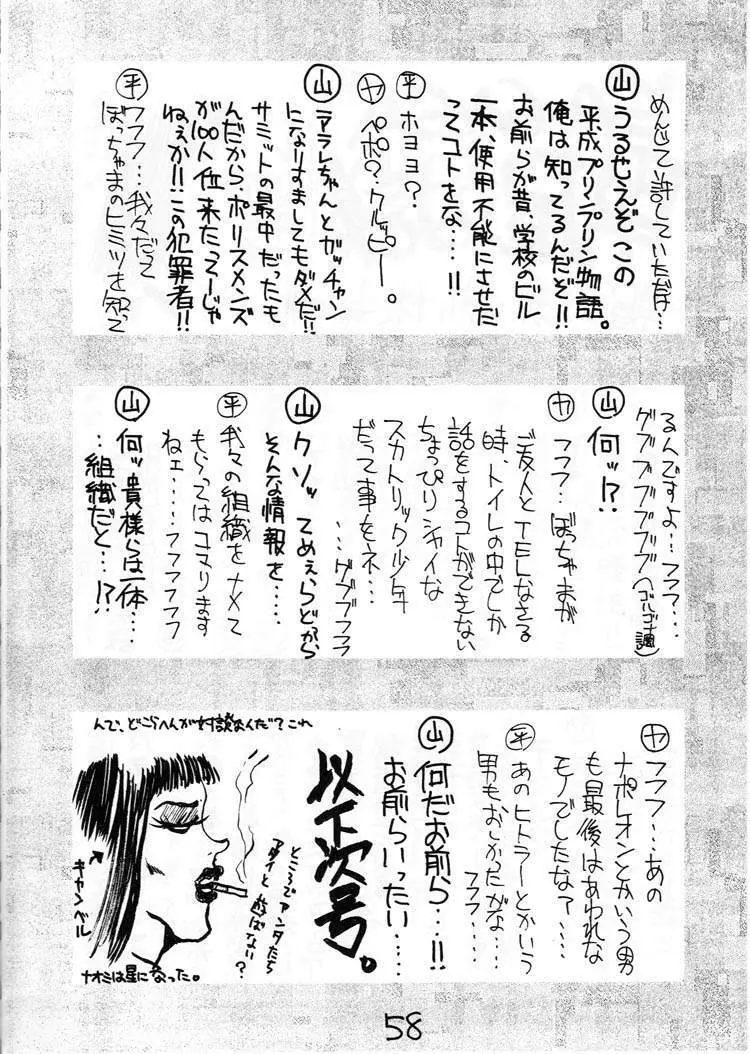 めんじて許していただけ…
山 うるせえぞこの
平成プリンプリン物語。
俺は知ってるんだぞ!!
お前らが昔、学校のビル
一本、使用不能にさせた
ってコトをな…!!
平 ホヨヨ?
ヤ ペポ?クルッピー。
山 アラレちゃんとガッチャン
になりすましてもダメだ!!
サミットの最中だったも
んだから、ポリスメンズ
が100人位来たってーじゃ
ねぇか!!この犯罪者!!
平 ウフフ…我々だって
ぼっちゃまのヒミツを知って
るんですよ…フフフ…
グブブブブブブ(ゴルゴ13調)
山 何ッ!?
ヤ フフフ…ぼっちゃまが
ご友人とTELしなさる
時、トイレの中でしか
話をするコトができない
ちょっぴりシャイな
スカトリック少年
だって事をネ…
…グブブフフフ
山 クソッてめえらどから
そんな情報を…
平 我々の組織をナメて
もらってはコマります
ねェ……フフフフフ
山 何ッ貴様らは一体…
…組織だと…!?
ヤ フフフ…あの
ナポレオンとかいう男
も最後はあわれな
モノでしたなァ…
平 あのヒトラーとかいう
男もおしかったがな…
フフフ…
山 何だお前ら…!!
お前らいったい……
以下次号。
んで、どこらへんが対談なんだ?これ
ところでアンタたち
アタイと遊ばない?
キャンベル
ナオミは星になった。
58